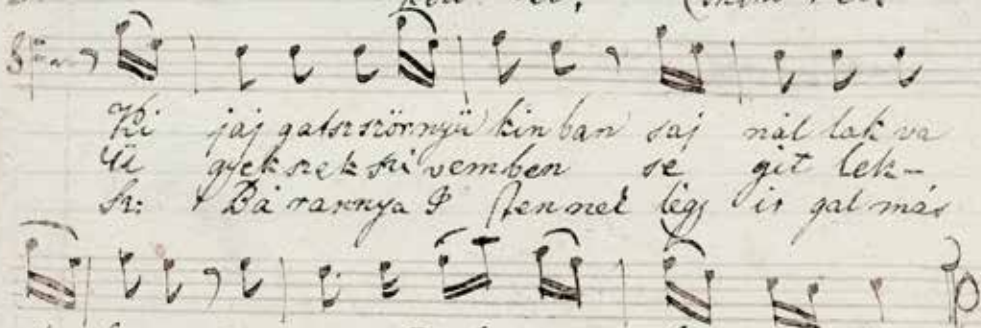 Ki jaj gatsz szörnyü kin ban saj nál lak va
Ü gyekszek szi vemben se git lek-
Sz: Bá rannya I stennek légy ir gal más